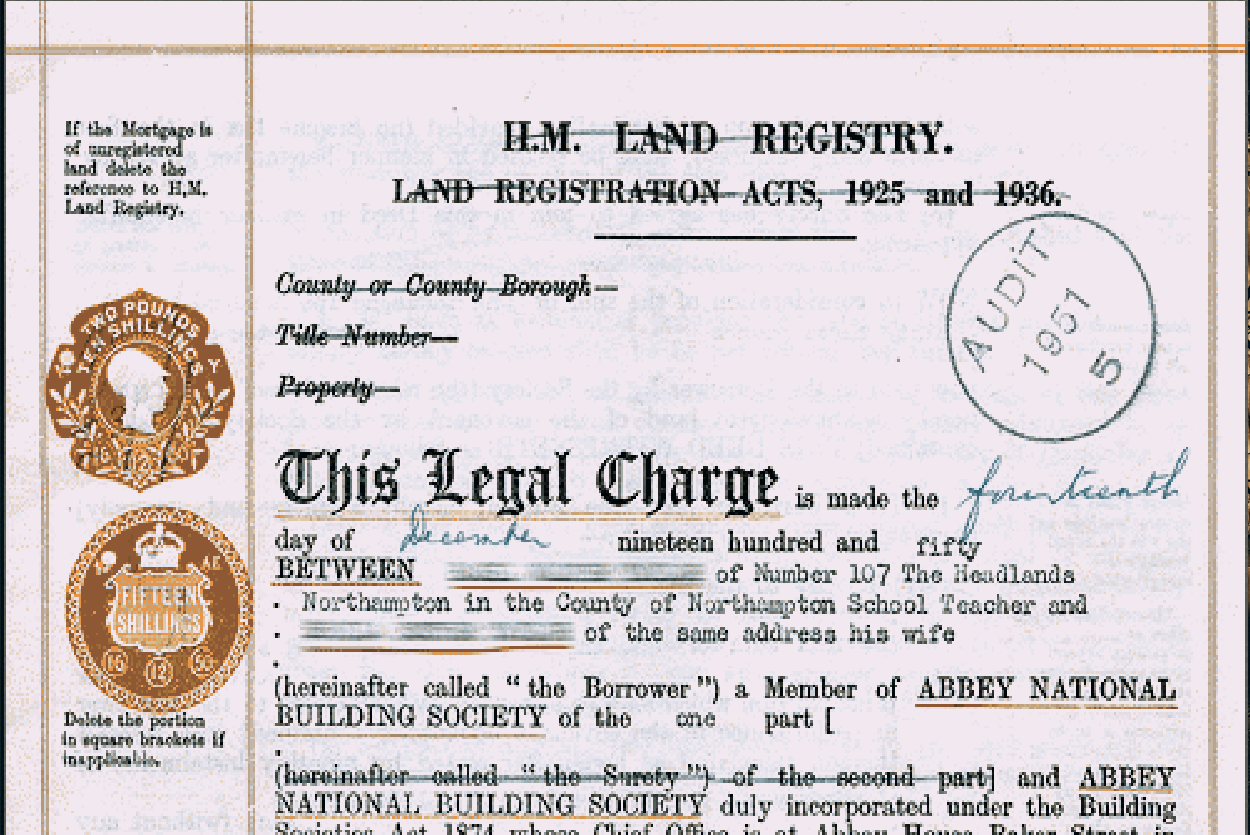 If the Mortgage is
of unregistered
land delete the
reference to H.M.
Land Registry.
H.M. LAND REGISTRY.
LAND REGISTRATION ACTS, 1925 and 1936.
AUDIT
1957
5
County or County Borough—
Title Number—
Property—
TWO POUNDS
TEN SHILLINGS
This Legal Charge is made the fourteenth
day of December nineteen hundred and fifty
BETWEEN of Number 107 The Headlands
Northampton in the County of Northampton School Teacher and
of the same address his wife
FIFTEEN
SHILLINGS
(hereinafter called “the Borrower”) a Member of ABBEY NATIONAL
BUILDING SOCIETY of the one part [
Delete the portion
in square brackets if
inapplicable.
(hereinafter called “the Surety”) of the second part] and ABBEY
NATIONAL BUILDING SOCIETY duly incorporated under the Building
Societies Act 1874 whose Chief Office is at Abbey House Baker Street in